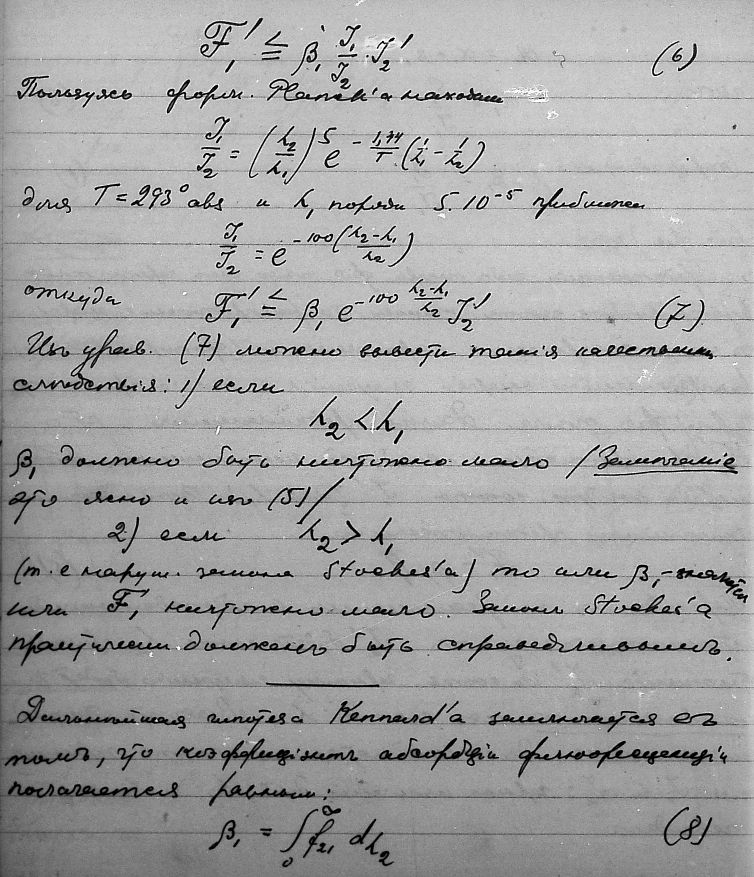 F₁' ≦ β₁ J₁/J₂ · J₂' (6)
Пользуясь форм. Planck'a находим
J₁/J₂ = (λ₂/λ₁)⁵ e^{- 1,44/T (1/λ₁ - 1/λ₂)}
для T = 293° abs и λ₁ порядк 5.10⁻⁵ приближен
J₁/J₂ = e^{-100 (λ₂-λ₁/λ₂)}
откуда F₁' ≦ β₁ e^{-100 λ₂-λ₁/λ₂} J₂' (7)
Изъ урав. (7) можно вывести такія качественныя
слѣдствія: 1) если
λ₂ < λ₁
β₁ должно быть ничтожно мало /Замѣчаніе
это ясно и изъ (5)/
2) если λ₂ > λ₁
(т. е наруш. закона Stockes'a) то или β₁
или F₁' ничтожно мало. Законъ Stockes'a
практически долженъ быть справедливымъ.
Дальнѣйшая гипотеза Kennard'a заключается въ
томъ, что коэффиціентъ абсорбціи флюоресценціи
полагается равнымъ:
β₁ = ∫₀^∞ f₂₁ dλ₂ (8)